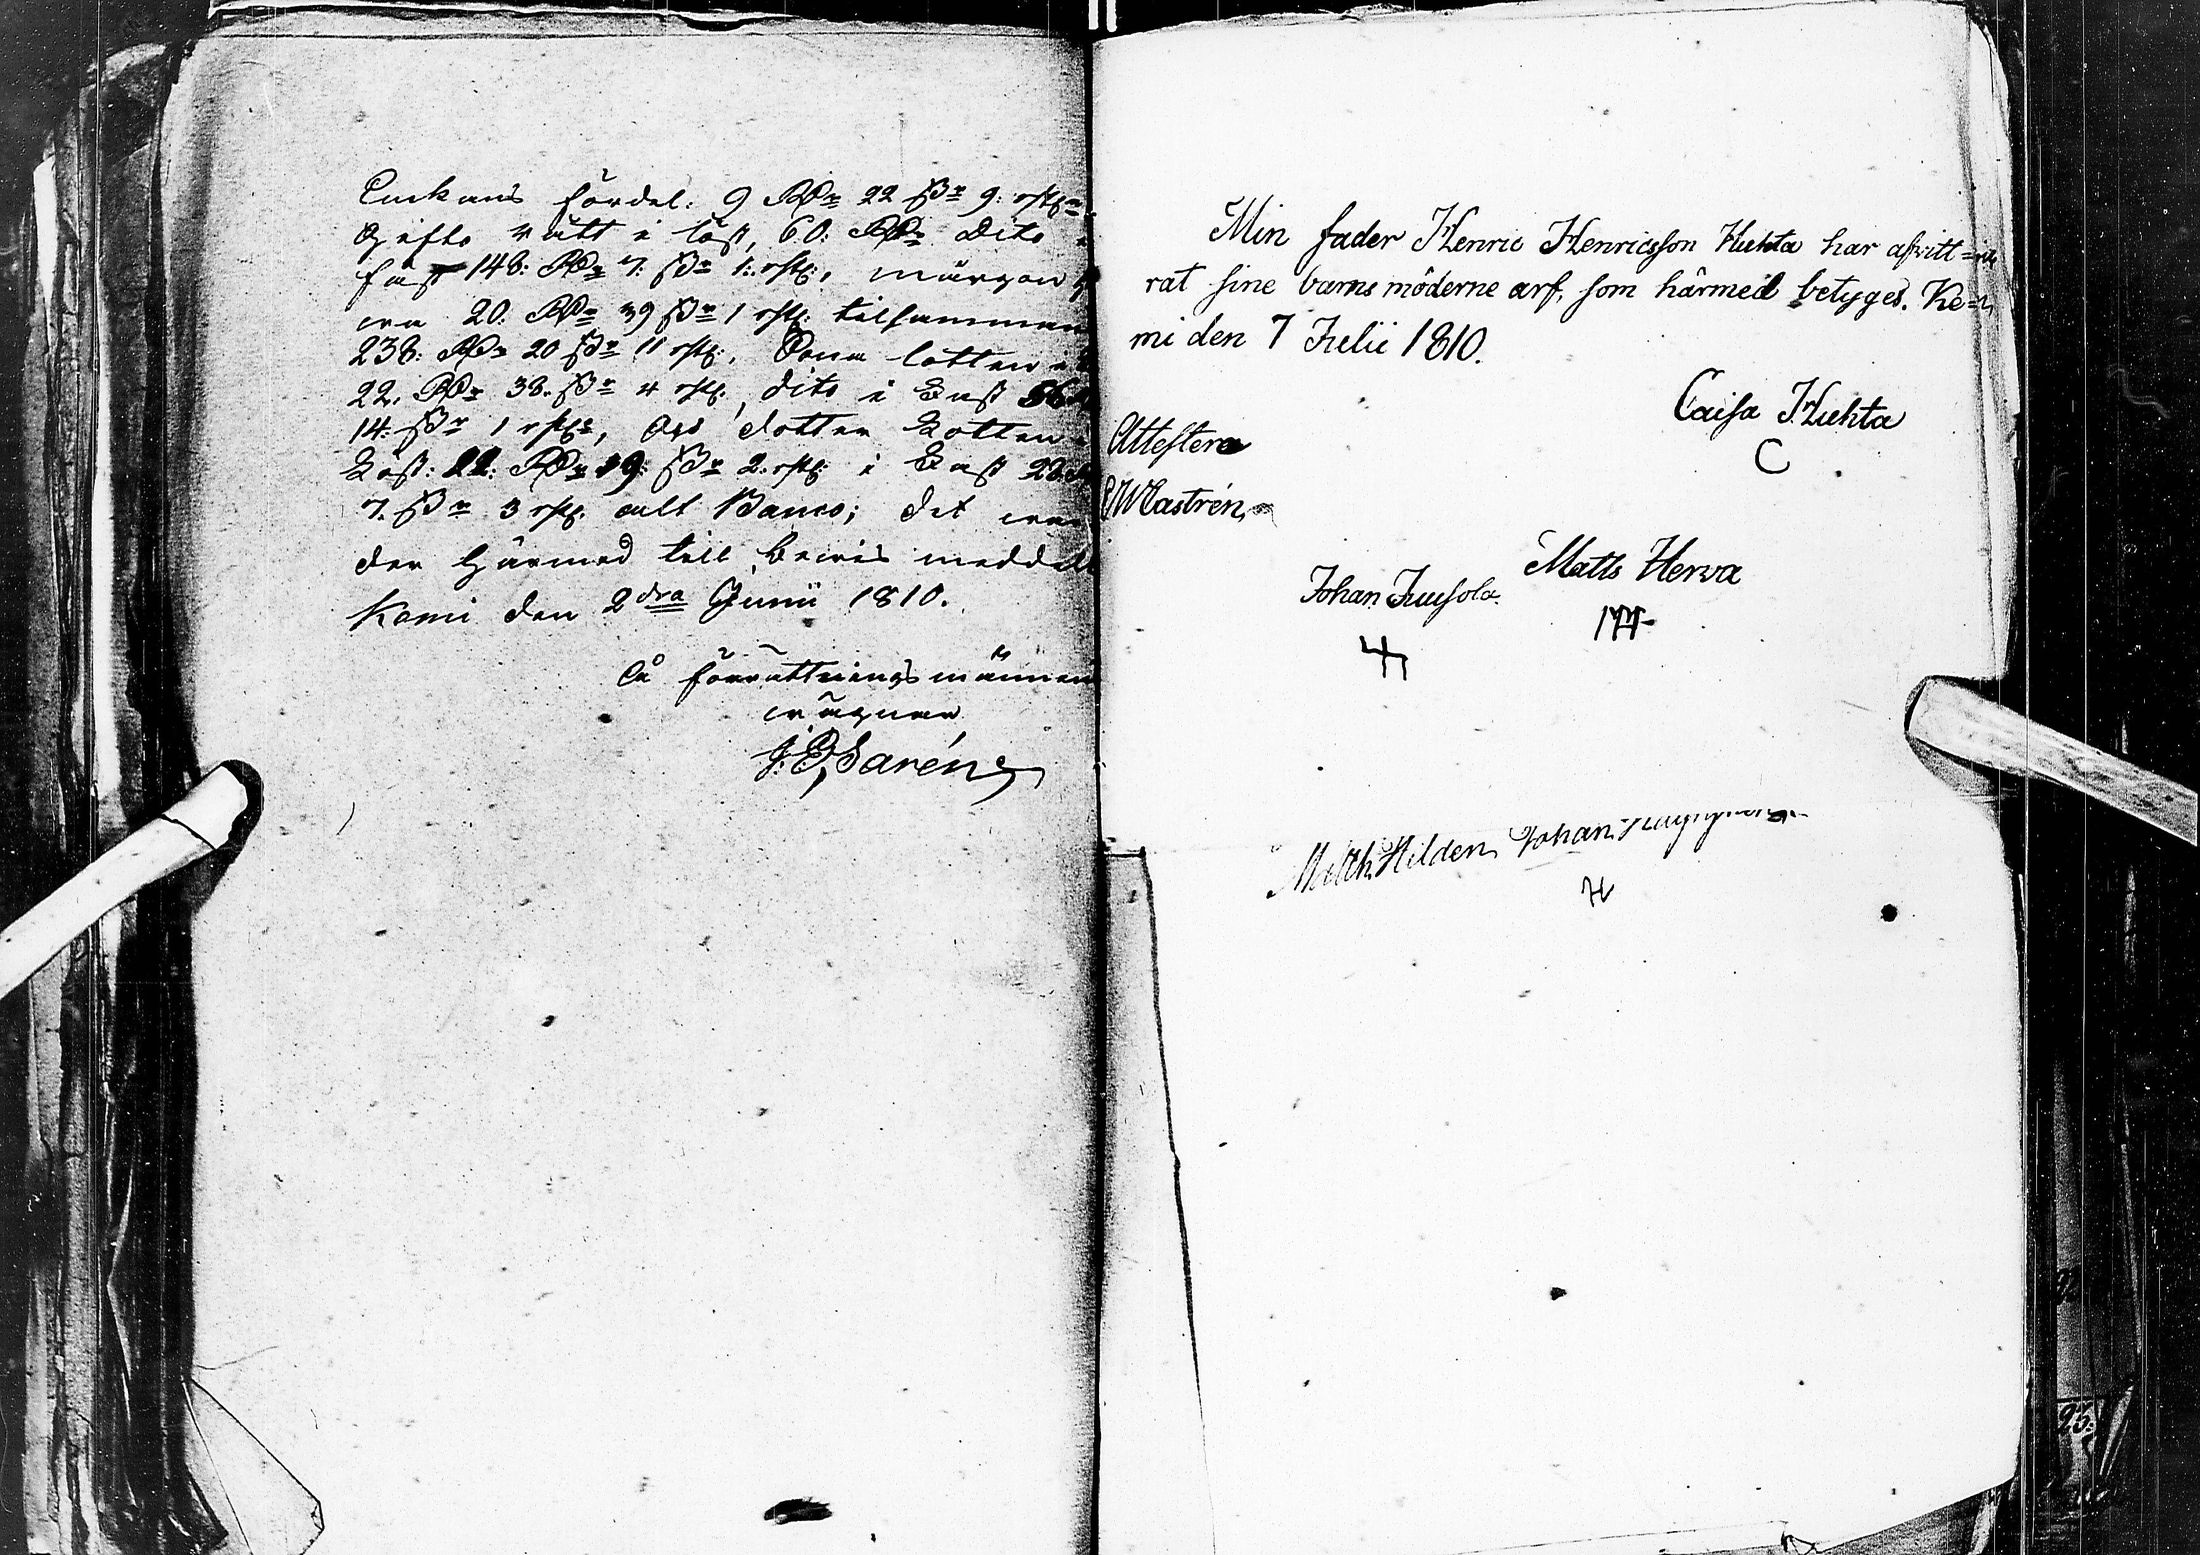 Enckans fördel: 9 RDr 22 ßr 9: rst:
Gifto rätt i löst, 60: RDr Dito
fast 148: RDr 7: ßr 1: rst:, märgon
era 20: RDr 39 ßr 1 rst: tilsamman
238: RDr 20 ßr 11 rst:, Sona lotten i
22. RDr 38. ßr 4 rst:, dito i Fast 56
14: ßr 1 rst:, och dotter Lotten
Löst: 11: RDr 19: ßr 2: rst: i Fast 28
7. ßr 3 rst: alt Banco; det
der härmed till bewis meddelt
Kemi den 2dra Junii 1810.
På förrättningsmännens
wägnar
J: G: Sarén
Min fader Henric Henricsson Huhta har afwitt=
rat sine barns möderne arf, som härmed betyges. Ke=
mi den 7 Julii 1810.
Caisa Huhta
C
Attestera
EW Castrén
Matts Herva
Johan Juusola
Matth. Hilden Johan
H
25: